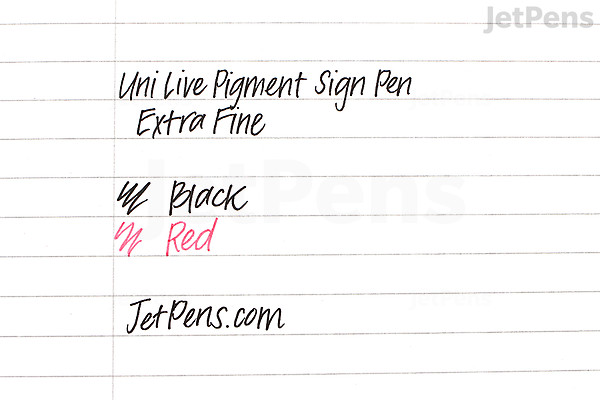 JetPens
Uni Live Pigment Sign Pen
Extra Fine
JetPens
Black
Red
JetPens
JetPens.com